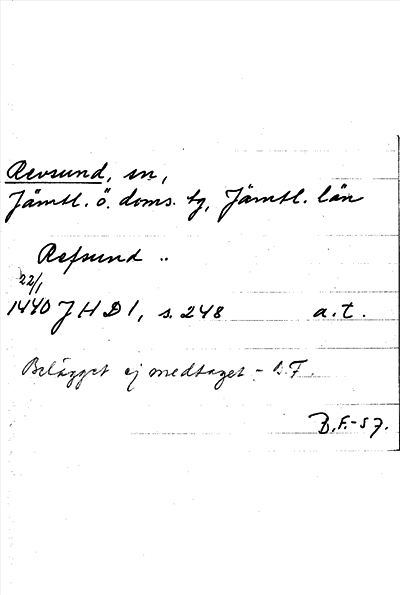 Revsund, sn,
Jämtl. ö. doms. tg, Jämtl. län
Refsund ..
22/1
1440 JHD 1, s. 248 a.t.
Belägget ej medtaget - B.F.
B.F.-57.